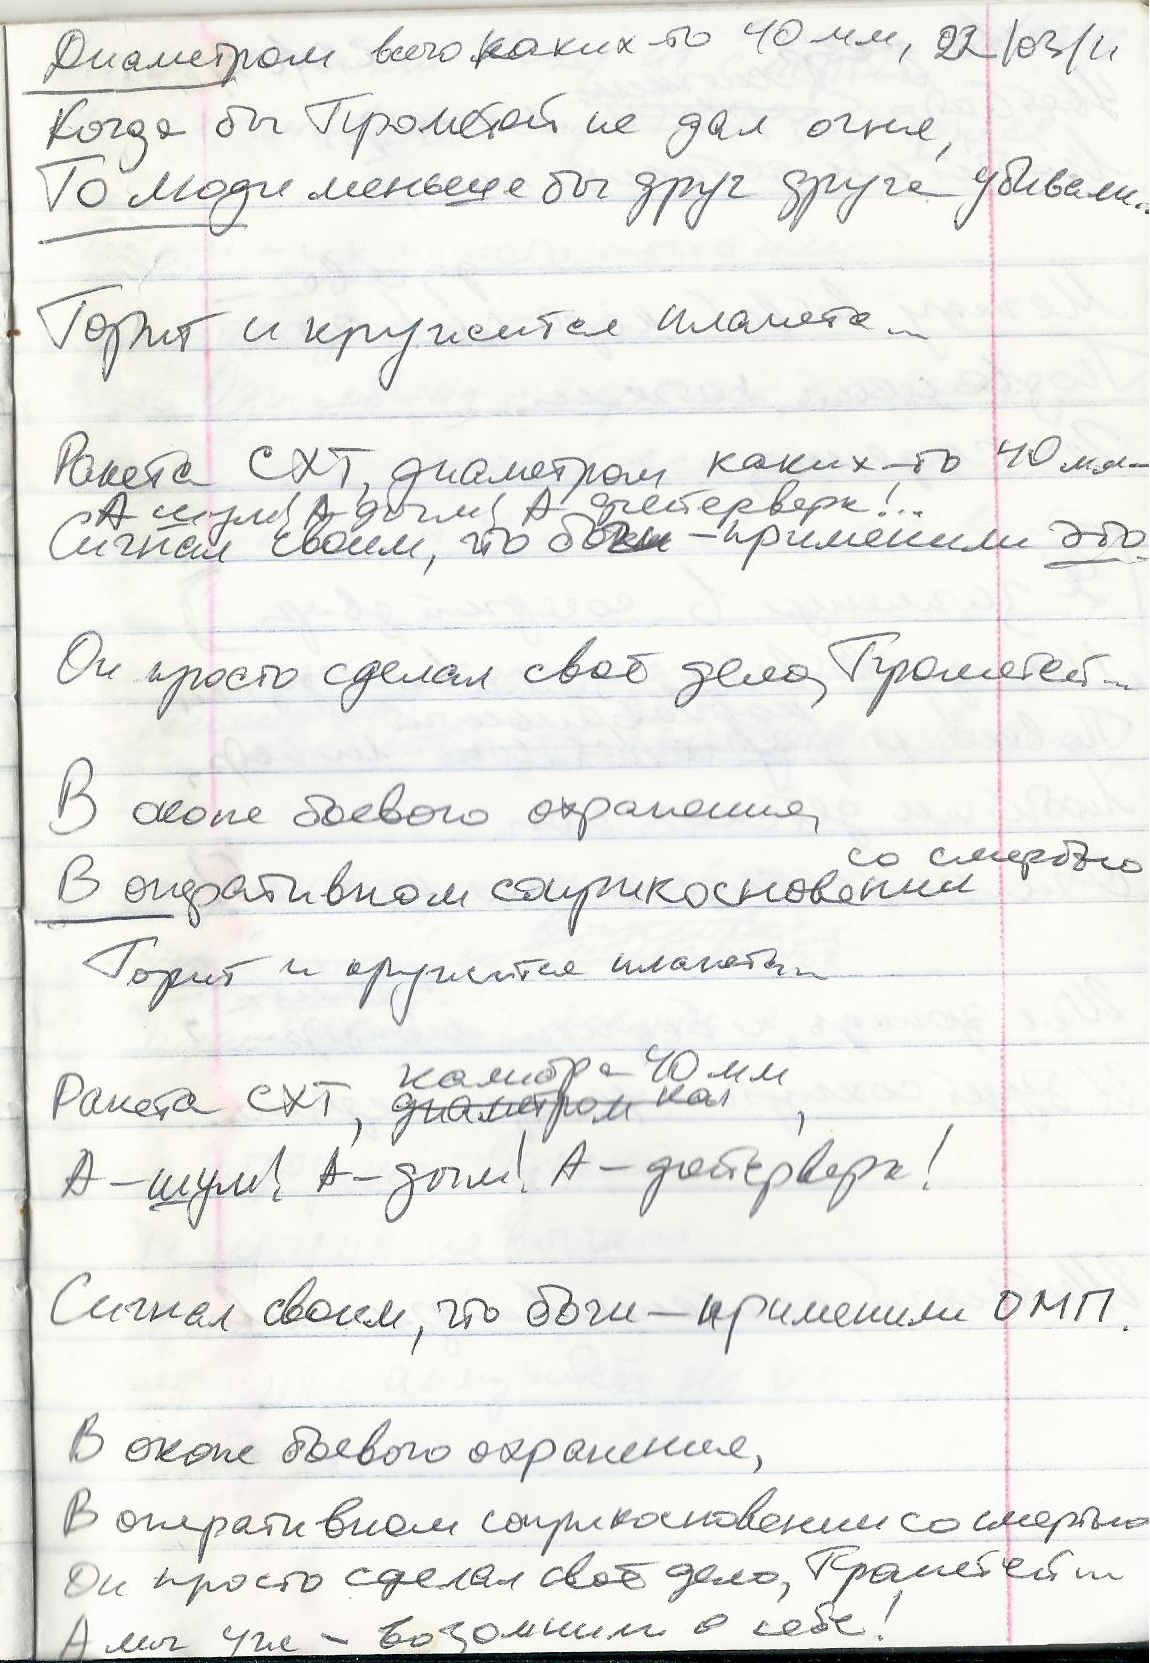 Диаметром всего каких-то 40 мм, 22/03/11
Когда бы Прометей не дал огня,
То люди меньше бы друг друга убивали...
Горит и кружится планета...
Ракета СХТ, диаметром каких-то 40 мм
А шум! А дым! А фейерверк!...
Сигнал своим, что боги - применили это
Он просто сделал своё дело, Прометей...
В окопе боевого охранения,
со смертью
В оперативном соприкосновении
Горит и кружится планета...
калибра 40 мм
Ракета СХТ, диаметром кал ,
А - шум! А - дым! А - фейерверк!
Сигнал своим, что боги - применили ОМП.
В окопе боевого охранения,
В оперативном соприкосновении со смертью
Он просто сделал своё дело, Прометей...
А мы уже - возомнили о себе!